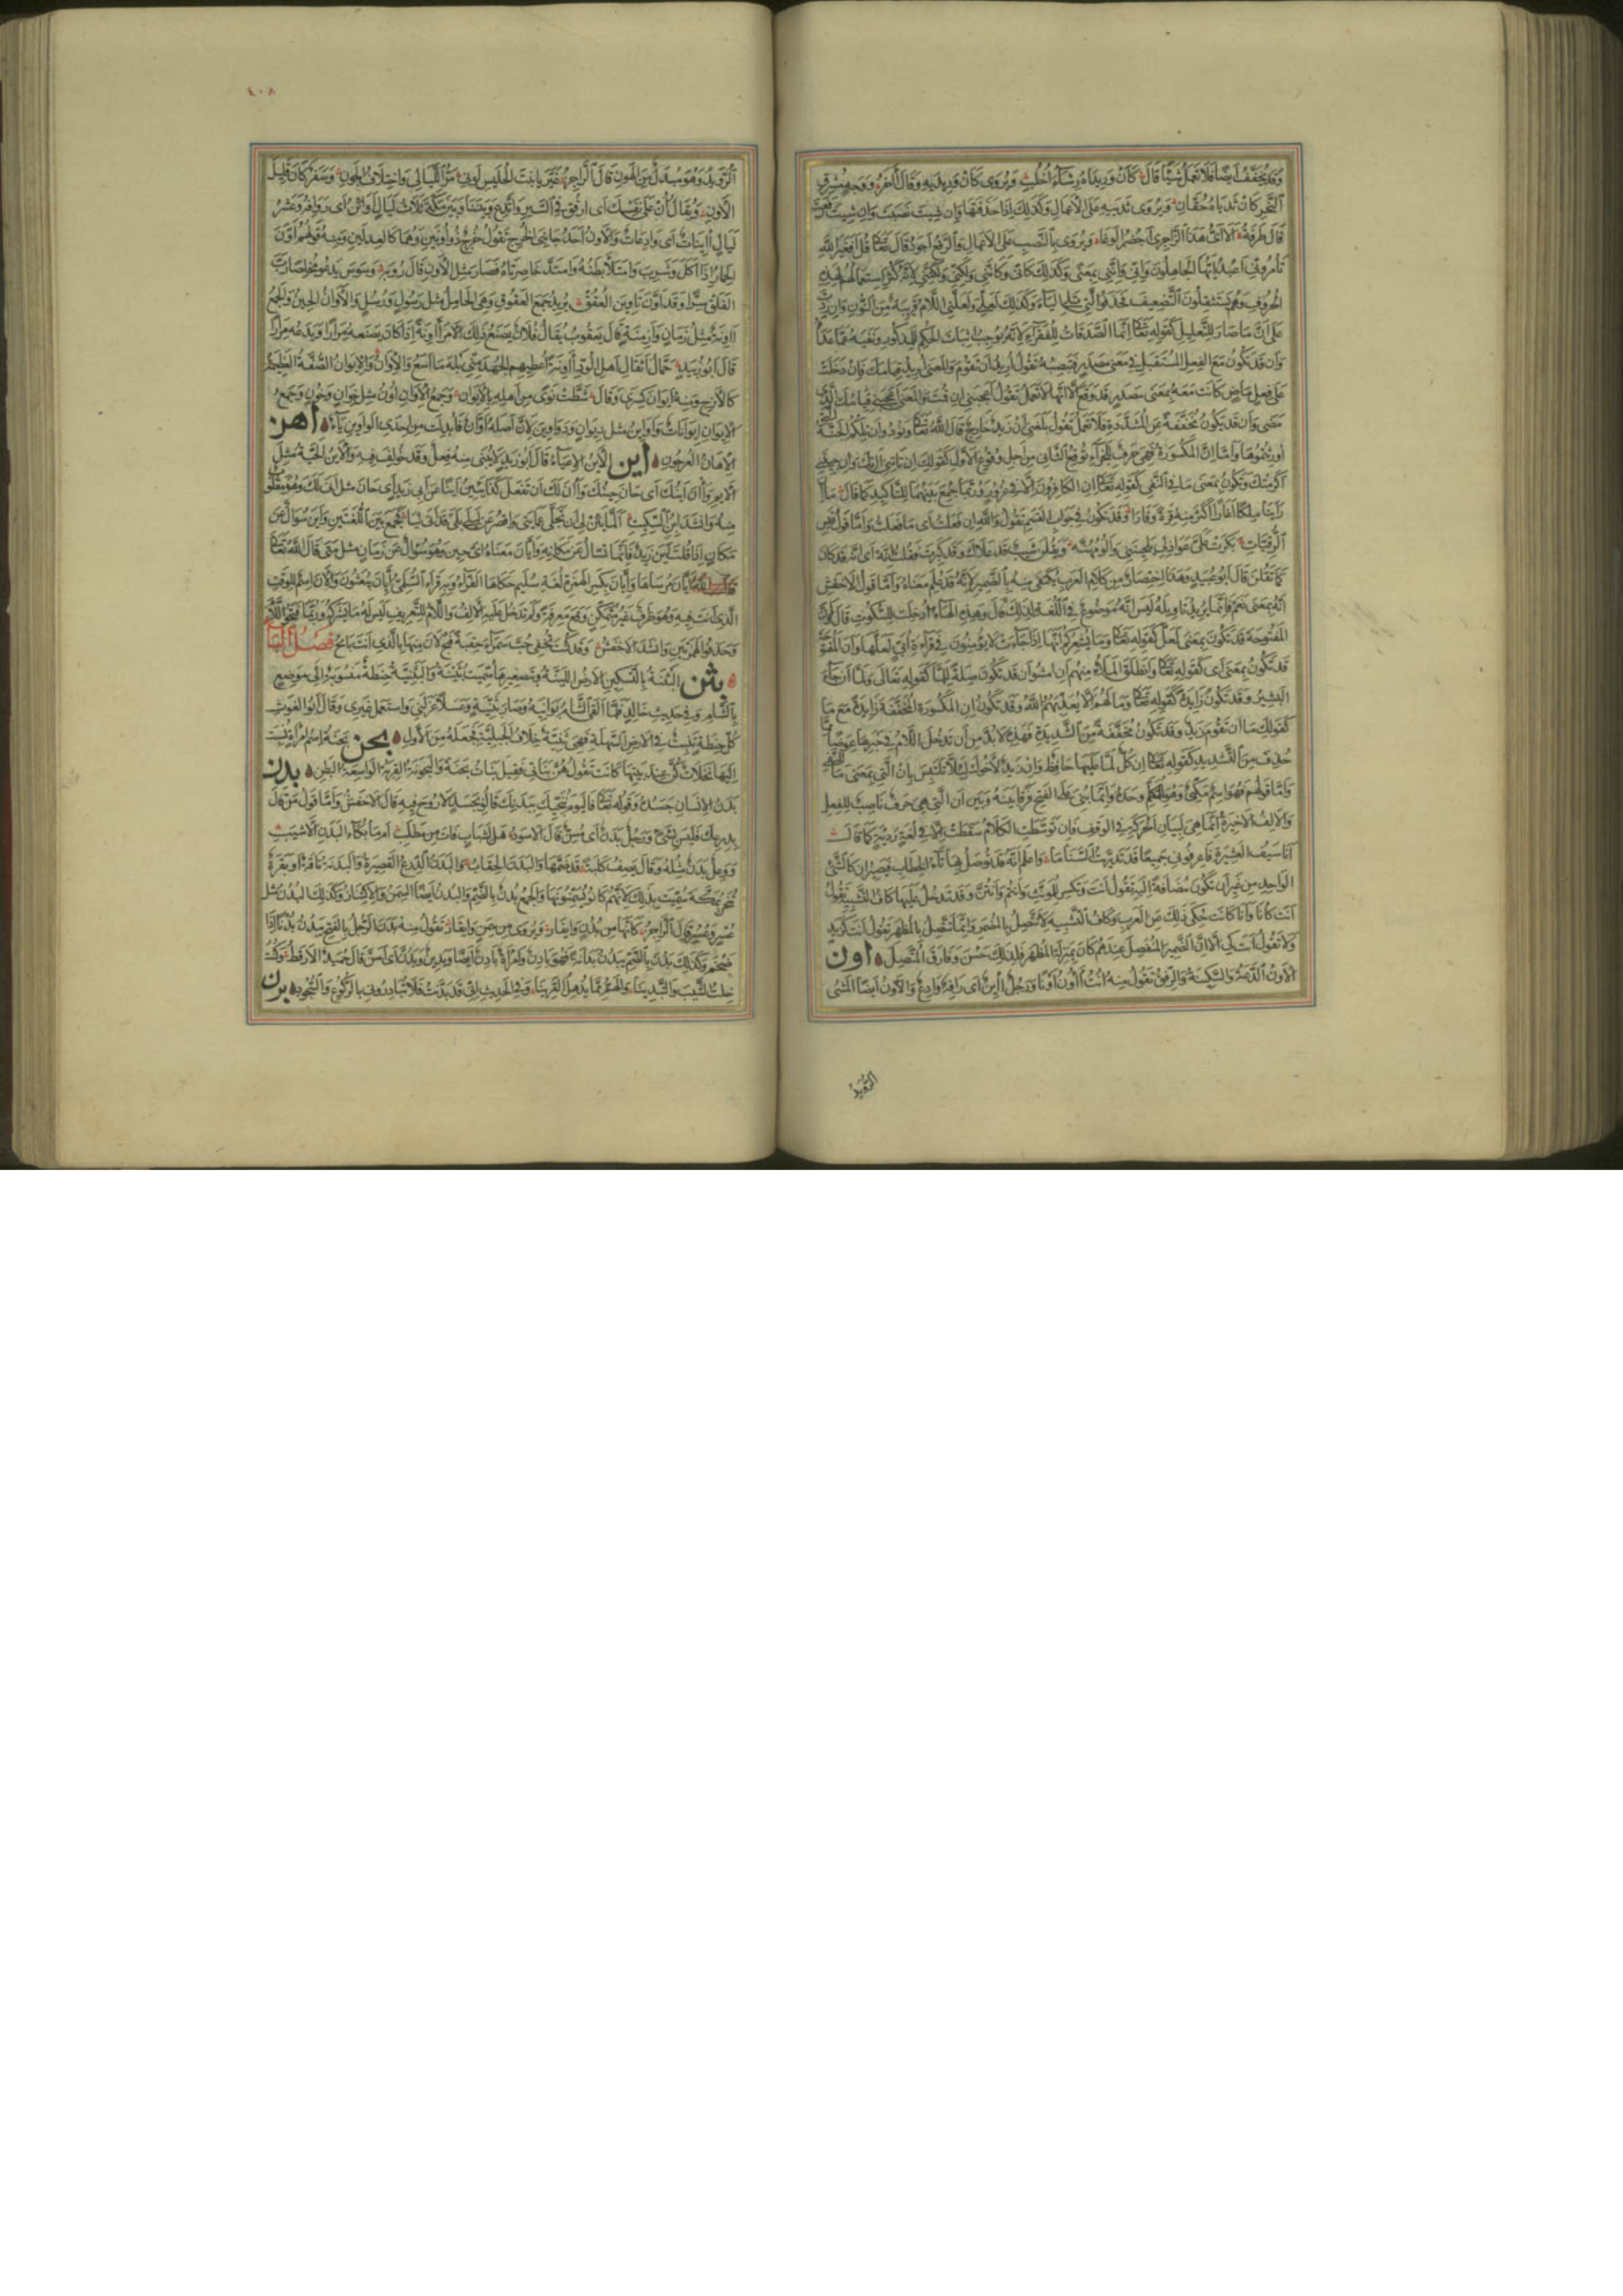 وقد تخفف ايضا فلا تعمل شيئا قال كان وريداه رشاء اخلب ويروى كان وريديه وقال آخر ووجه مشرق
النحر كان ثدياه حقان ويروى ثدييه على الاعمال وكذلك اذا حذفتها وان شئت نصبت وان شئت رفعت
قال طرفة الا ايهذا الزاجرى احضر الوغا ويروى بالنصب على الاعمال والرفع اجود قال تعالى قل افغير الله
تأمرونى اعبد ايها الجاهلون وانى واننى بمعنى وكذلك كانى وكاننى ولكنى ولكننى لانه كثر استعمالهم لهذه
الحروف وهم يستثقلون التضعيف فحذفوا التى تلى الياء وكذلك لعلى ولعلنى اللام قريبة من النون وان زدت
على ان ما صار للتعليل كقوله تعالى انما الصدقات للفقراء لانه يوجب اثبات الحكم للمذكور ونفيه عما عداه
وان قد تكون مع الفعل المستقبل فى معنى مصدر فتنصبه تقول اريد ان تقوم والمعنى اريد قيامك فان دخلت
على فعل ماض كانت معه بمعنى مصدر قد وقع الا انها لا تعمل تقول اعجبنى ان قمت والمعنى اعجبنى قيامك الذى
مضى وان قد تكون مخففة عن المشددة فلا تعمل تقول بلغنى ان زيد خارج قال الله تعالى ونودوا ان تلكم الجنة
اورثتموها واما ان المكسورة فهى حرف للجزاء توقع الثانى من اجل وقوع الاول كقولك ان تأتنى اتك وان جئتنى
اكرمتك وتكون بمعنى ما فى النفى كقوله تعالى ان الكافرون الا فى غرور وربما جمع بينهما للتاكيد كما قال ما ان
راينا ملكا اغارا اكثر منه قرة وقارا وقد تكون فى جواب القسم تقول والله ان فعلت اى ما فعلت واما قول ابن قيس
الرقيات بكرت على عواذلى يلحيننى والومهنه ويقلن شيب قد علاك وقد كبرت فقلت انه اى انه قد كان
كما تقلن قال ابو عبيد وهذا اختصار من كلام العرب يكتفى منه بالضمير لانه قد علم معناه واما قول الاخفش
انه بمعنى نعم فانما يريد تاويله ليس انه موضوع فى اللغة لذلك قال وهذه الهاء ادخلت للسكوت قال وان
المفتوحة قد تكون بمعنى لعل كقوله تعالى وما يشعركم انها اذا جاءت لا يؤمنون وفى قراءة ابى لعلها وان المفتوحة
قد تكون بمعنى اى كقوله تعالى وانطلق الملأ منهم ان امشوا وان قد تكون صلة للما كقوله تعالى ولما ان جاء
البشير وقد تكون زايدة كقوله تعالى وما لهم الا يعذبهم الله وقد تكون ان المكسورة المخففة زايدة مع ما
كقولك ما ان تقوم زيد وقد تكون مخففة من الشديدة فهذه لا بد من ان تدخل اللام فى خبرها عوضا مما
حذف من التشديد كقوله تعالى ان كل نفس لما عليها حافظ وان زيد لاخوك لئلا تلتبس بان التى بمعنى ما للنفى
واما قولهم انا فهو اسم مكنى وهو للمتكلم وحده وانما بنى على الفتح فرقا بينه وبين ان التى هى حرف ناصب للفعل
والالف الاخيرة انما هى لبيان الحركة فى الوقف فان توسطت الكلام سقطت الا فى لغة ردية كما قال
انا سيف العشيرة فاعرفونى جميعا قد تذريت السناما واعلم انه قد توصل بها تاء الخطاب فيصيران كالشئ
الواحد من غير ان تكون مضافة اليه تقول انت وتكسر للمؤنث وانتم وانتن وقد تدخل عليها كاف التشبيه تقول
انت كانا وانا كانت حكى ذلك عن العرب وكاف التشبيه لا تتصل بالمضمر وانما تتصل بالمظهر تقول انت كزيد
ولا تقول انت كى الا ان الضمير المنفصل عندهم كان بمنزلة المظهر فلذلك حسن وفارق المتصل اون
الاون الدعة والسكينة والرفق تقول منه انت اؤون اونا ورجل آئن اى رافه وادع والاون ايضا المشى
الرويد
٤٠٨
الرويد وهو مبدل من الهون قال الراجز غير يا بنت الحليس لونى مر الليالى واختلاف الجون وسفر كان قليل
الاون ويقال ان على نفسك اى ارفق فى السير واتدع وبيننا وبين مكة ثلاث ليال اوائن اى روافه وعشر
ليال اينات اى وادعات والاون احد جانبى الخرج تقول خرج ذو اونين وهما كالعدلين ومنه قولهم اون
الحمار اذا اكل وشرب وامتلأ بطنه وامتد خاصرتاه فصار مثل الاون قال رؤبة وسوس يدعو مخلصا رب
الفلق سرا وقد اون تاوين العقق يريد جمع العقوق وهى الحامل مثل رسول ورسل والاوان الحين والجمع
اونة مثل زمان وازمنة قال يعقوب يقال فلان يصنع ذلك الامر اونة اذا كان يصنعه مرارا ويدعه مرارا
قال ابو زبيد حمال اثقال اهل الود اونة اعطيهم الجهد منى بله ما اسع والاوان والايوان الصفة العظيمة
كالازج ومنه ايوان كسرى وقال شطت نوى من اهله بالايوان وجمع الاوان اون مثل خوان وخون وجمع
الايوان ايوانات واواوين مثل ديوان ودواوين لان اصله اوان فابدلت من احدى الواوين ياء اهن
الاهان العرجون اين الاين الاعياء قال ابو زيد لا يبنى منه فعل وقد خولف فيه والاين الحية مثل
الايم وآن اينك اى حان حينك وآن لك ان تفعل كذا يئين اينا عن ابى زيد اى حان مثل انى لك وهو مقلوب
منه وانشد ابن السكيت الما يئن لى ان تجلى عمايتى واقصر عن ليلى بلى قد انى ليا فجمع بين اللغتين واين سؤال عن
مكان اذا قلت اين زيد فانما تسال عن مكانه وايان معناه اى حين وهو سؤال عن زمان مثل متى قال الله تعالى
ايان مرساها وايان بكسر الهمزة لغة سليم حكاها الفراء وبه قرأ السلمى ايان يبعثون والآن اسم للوقت
الذى انت فيه وهو ظرف غير متمكن وقع معرفة ولم تدخل عليه الالف واللام للتعريف لانه ليس له ما يشركه وربما فتحوا اللام
وحذفوا الهمزتين وانشد الاخفش وقد كنت تخفى حب سمراء حقبة فبح لان منها بالذى انت بائح فصل الباء
بثن البثنة بالتسكين الارض اللينة وبتصغيرها سميت بثينة والبثنية حنطة منسوبة الى موضع
بالشام وفى حديث خالد فلما القى الشام بوانيه وصار بثنية وعسلا عزلنى واستعمل غيرى وقال ابو الغوث
كل حنطة تنبت فى الارض السهلة فهى بثنية خلاف الجبلية فجعله من الاول بحن بحنة اسم امراة نسبت
اليها نخلات كن عند بيتها كانت تقول هن بناتى فقيل بنات بحنة والبحونة القربة الواسعة البطن بدن
بدن الانسان جسده وقوله تعالى فاليوم ننجيك ببدنك قالوا بجسد لا روح فيه قال الاخفش واما قول من قال
بدرعك فليس بشئ ورجل بدن اى مسن قال الاسود هل لشباب فات من مطلب ام ما بكاء البدن الاشيب
ووعل بدن مثله وقال يصف كلبة قد ضمها والبدن الحقاب والبدن الدرع القصيرة والبدنة ناقة او بقرة
تنحر بمكة سميت بذلك لانهم كانوا يسمنونها والجمع بدن بالضم والبدن ايضا السمن والاكتناز وكذلك البدن مثل
عسر وعسر قال الراجز كانها من بدن وايفار ويروى من سمن وايفار تقول منه بدن الرجل بالفتح يبدن بدنا اذا
ضخم وكذلك بدن بالضم يبدن بدانة فهو بادن وامراة بادن ايضا وبدين وبدن اى اسن قال حميد الارقط وكنت
خلت الشيب والتبدينا والهم مما يذهل القرينا وفى الحديث انى قد بدنت فلا تبادرونى بالركوع والسجود برن